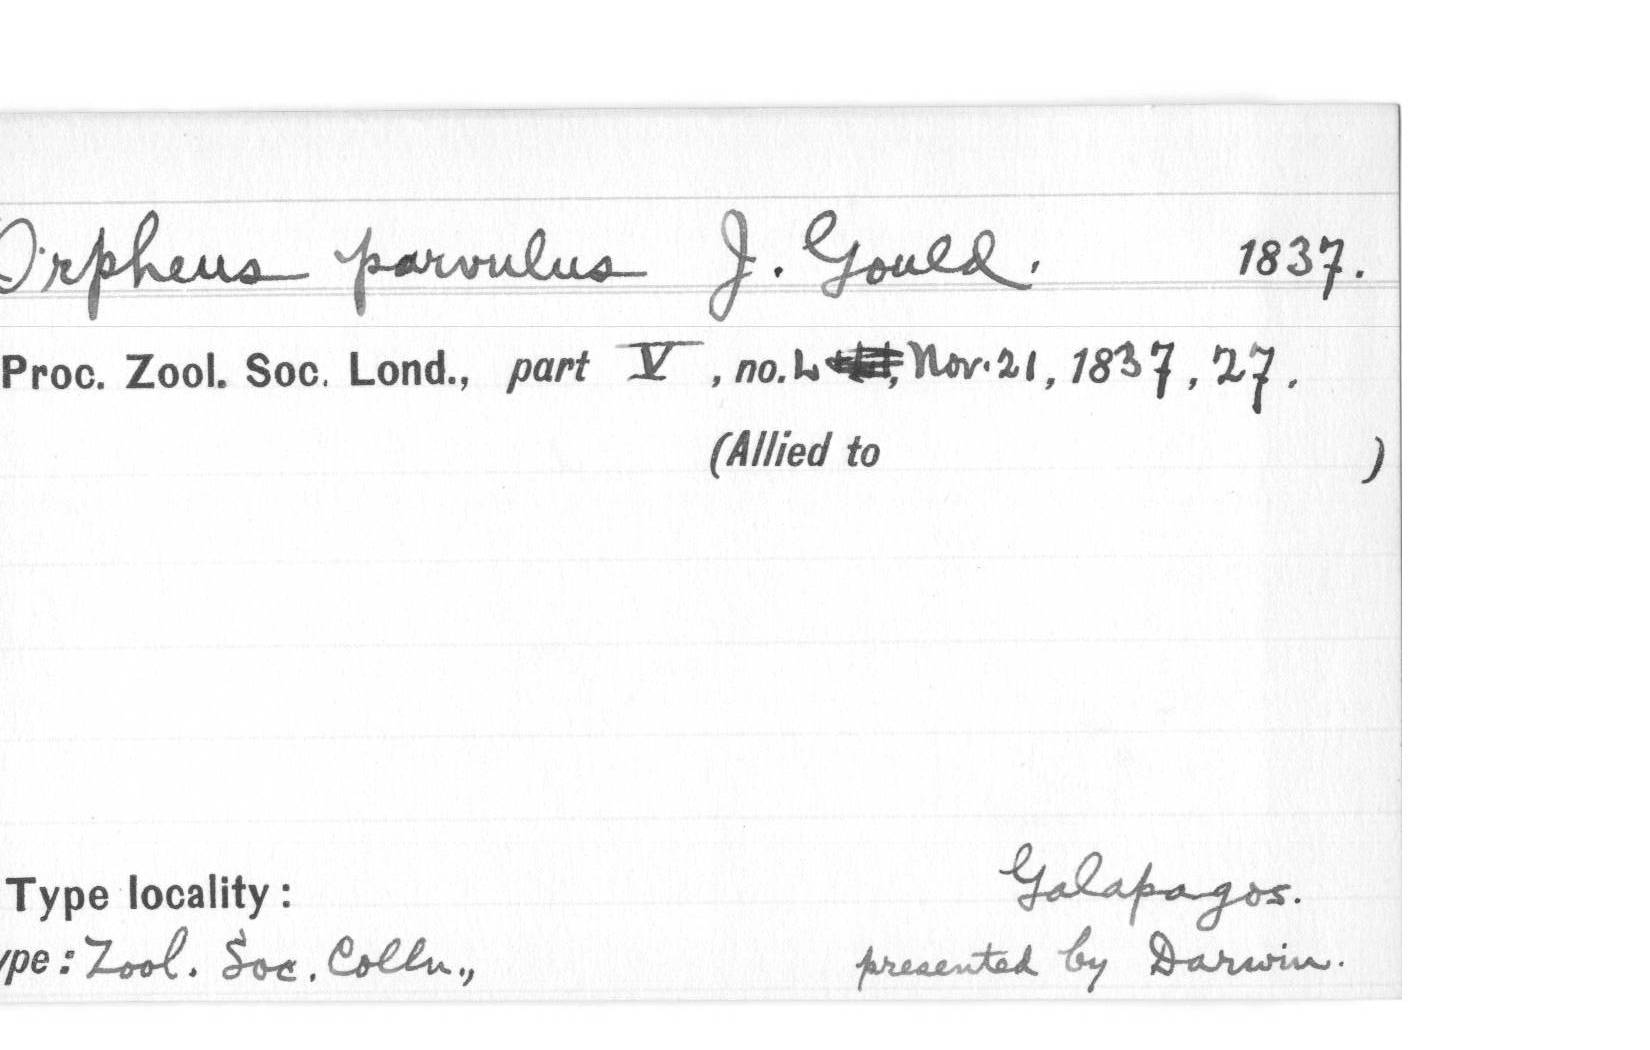 Orpheus parvulus J. Gould. 1837.
Proc. Zool. Soc. Lond., part V, no. Nov. 21, 1837, 27.
(Allied to )
Type locality: Galapagos.
ype: Zool. Soc. Colln., presented by Darwin.